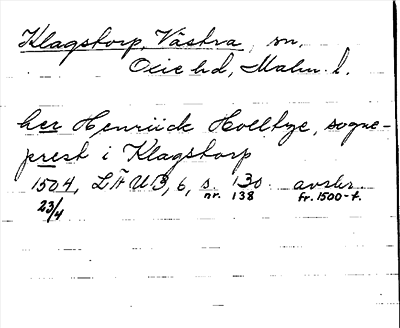 Klagstorp, Västra, sn,
Oxie hd, Malm. l.
her Henriick Hollbye, sogne-
prest i Klagstorp
1504, LÄUB, 6, s. 130. avskr.
23/4 nr. 138 fr. 1500-t.